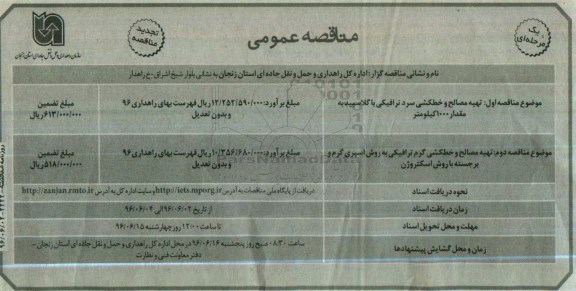 یک مرحله‌ای
مناقصه عمومی
تجدید مناقصه
سازمان راهداری و حمل و نقل جاده‌ای استان زنجان
نام و نشانی مناقصه گزار: اداره کل راهداری و حمل و نقل جاده ای استان زنجان به نشانی بلوار شیخ اشراق-خ راهدار
موضوع مناقصه اول: تهیه مصالح و خطکشی سرد ترافیکی با گلاسبید به مقدار ۱۰۰۰ کیلومتر
مبلغ برآورد: ۱۲/۲۵۲/۵۹۰/۰۰۰ ریال فهرست بهای راهداری ۹۶ و بدون تعدیل
مبلغ تضمین ۶۱۳/۰۰۰/۰۰۰ ریال
موضوع مناقصه دوم: تهیه مصالح و خطکشی گرم ترافیکی به روش اسپری گرم و برجسته با روش اسکتروژن
مبلغ برآورد: ۱۰/۳۵۶/۶۸۰/۰۰۰ ریال فهرست بهای راهداری ۹۶ و بدون تعدیل
مبلغ تضمین ۵۱۸/۰۰۰/۰۰۰ ریال
نحوه دریافت اسناد
دریافت از پایگاه ملی مناقصات به آدرس http://iets.mporg.ir وسایت اداره کل به آدرس http://zanjan.rmto.ir
زمان دریافت اسناد
از تاریخ ۹۶/۰۶/۰۲ الی ۹۶/۰۶/۰۴
مهلت و محل تحویل اسناد
تا ساعت ۱۲:۰۰ روز چهارشنبه ۹۶/۰۶/۱۵
زمان و محل گشایش پیشنهادها
ساعت ۰۸:۳۰ صبح روز پنجشنبه ۹۶/۰۶/۱۶ در محل اداره کل راهداری و حمل و نقل جاده ای استان زنجان - دفتر معاونت فنی و نظارت